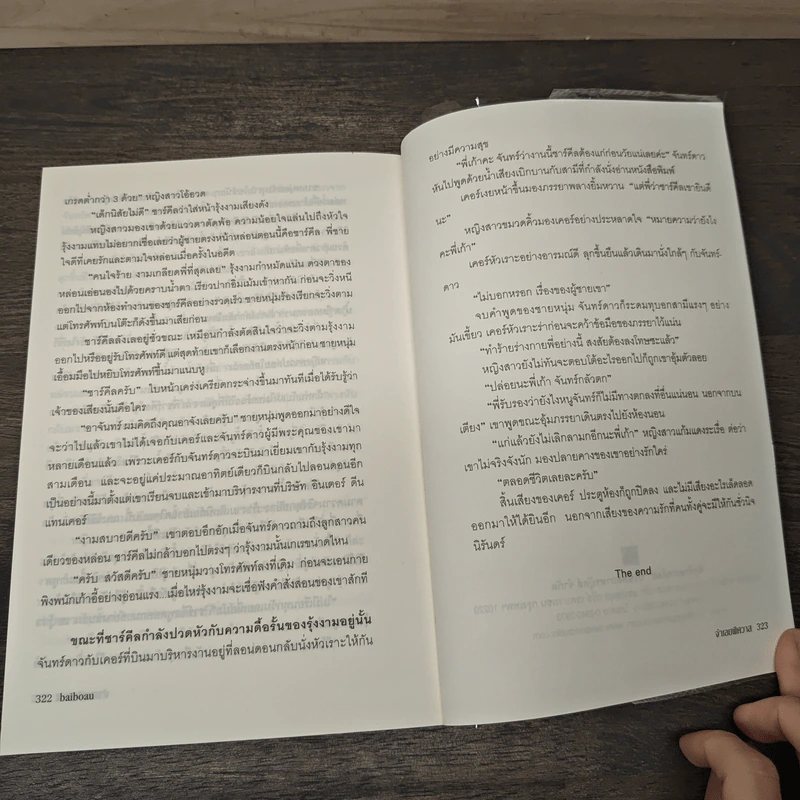 เกรดต่ำกว่า 3 ด้วย" หญิงสาวโอ้อวด
"เด็กนิสัยไม่ดี" ชาร์คีลว่าใส่หน้ารุ้งงามเสียงดัง
หญิงสาวมองเขาด้วยแววตาตัดพ้อ ความน้อยใจแล่นไปถึงหัวใจ
รุ้งงามแทบไม่อยากเชื่อเลยว่าผู้ชายตรงหน้าหล่อนตอนนี้คือชาร์คีล พี่ชาย
ใจดีที่เคยรักและตามใจหล่อนเมื่อครั้งในอดีต
"คนใจร้าย งามเกลียดพี่ที่สุดเลย" รุ้งงามกำหมัดแน่น ดวงตาของ
หล่อนเอ่อนองไปด้วยคราบน้ำตา เรียวปากอิ่มเม้มเข้าหากัน ก่อนจะวิ่งหนี
ออกไปจากห้องทำงานของชาร์คีลอย่างรวดเร็ว ชายหนุ่มร้องเรียกจะวิ่งตาม
แต่โทรศัพท์บนโต๊ะก็ดังขึ้นมาเสียก่อน
ชาร์คีลลังเลอยู่ชั่วขณะ เหมือนกำลังตัดสินใจว่าจะวิ่งตามรุ้งงาม
ออกไปหรืออยู่รับโทรศัพท์ดี แต่สุดท้ายเขาก็เลือกงานตรงหน้าก่อน ชายหนุ่ม
เอื้อมมือไปหยิบโทรศัพท์ขึ้นมาแนบหู
"ชาร์คีลครับ" ใบหน้าเคร่งเครียดกระจ่างขึ้นมาทันทีเมื่อได้รับรู้ว่า
เจ้าของเสียงนั้นคือใคร
"อาจันทร์ ผมคิดถึงคุณอาจังเลยครับ" ชายหนุ่มพูดออกมาอย่างดีใจ
จะว่าไปแล้วเขาไม่ได้เจอกับเคอร์และจันทร์ดาวผู้มีพระคุณของเขามา
หลายเดือนแล้ว เพราะเคอร์กับจันทร์ดาวจะบินมาเยี่ยมเขากับรุ้งงามทุก
สามเดือน และจะอยู่แค่ประมาณอาทิตย์เดียวก็บินกลับไปลอนดอนอีก
เป็นอย่างนี้มาตั้งแต่เขาเรียนจบและเข้ามาบริหารงานที่บริษัท อินเตอร์ ดีน
แทนเคอร์
"งามสบายดีครับ" เขาตอบอีกอีกเมื่อจันทร์ดาวถามถึงลูกสาวคน
เดียวของหล่อน ชาร์คีลไม่กล้าบอกไปตรงๆ ว่ารุ้งงามนั้นเกเรขนาดไหน
"ครับ สวัสดีครับ" ชายหนุ่มวางโทรศัพท์ลงที่เดิม ก่อนจะเอนกาย
พิงพนักเก้าอี้อย่างอ่อนแรง...เมื่อไหร่รุ้งงามจะเชื่อฟังคำสั่งสอนของเขาสักที
ขณะที่ชาร์คีลกำลังปวดหัวกับความดื้อรั้นของรุ้งงามอยู่นั้น
จันทร์ดาวกับเคอร์ที่บินมาบริหารงานอยู่ที่ลอนดอนกลับนั่งหัวเราะให้กัน
322 baiboau
อย่างมีความสุข
"พี่เก้าคะ จันทร์ว่างานนี้ชาร์คีลต้องแก่ก่อนวัยแน่เลยค่ะ" จันทร์ดาว
หันไปพูดด้วยน้ำเสียงเบิกบานกับสามีที่กำลังนั่งอ่านหนังสือพิมพ์
เคอร์เงยหน้าขึ้นมองภรรยาพลางยิ้มหวาน "แต่พี่ว่าชาร์คีลเขายินดี
นะ"
หญิงสาวขมวดคิ้วมองเคอร์อย่างประหลาดใจ "หมายความว่ายังไง
คะพี่เก้า"
เคอร์หัวเราะอย่างอารมณ์ดี ลุกขึ้นยืนแล้วเดินมานั่งใกล้ๆ กับจันทร์-
ดาว
"ไม่บอกหรอก เรื่องของผู้ชายเขา"
จบคำพูดของชายหนุ่ม จันทร์ดาวก็ระดมทุบอกสามีแรงๆ อย่าง
มันเขี้ยว เคอร์หัวเราะร่าก่อนจะคว้าข้อมือของภรรยาไว้แน่น
"ทำร้ายร่างกายพี่อย่างนี้ สงสัยต้องลงโทษซะแล้ว"
หญิงสาวยังไม่ทันจะตอบโต้อะไรออกไปก็ถูกเขาอุ้มตัวลอย
"ปล่อยนะพี่เก้า จันทร์กลัวตก"
"พี่รับรองว่ายังไงหนูจันทร์ก็ไม่มีทางตกลงที่อื่นแน่นอน นอกจากบน
เตียง" เขาพูดขณะอุ้มภรรยาเดินตรงไปยังห้องนอน
"แก่แล้วยังไม่เลิกลามกอีกนะพี่เก้า" หญิงสาวแก้มแดงระเรื่อ ต่อว่า
เขาไม่จริงจังนัก มองปลายคางของเขาอย่างรักใคร่
"ตลอดชีวิตเลยละครับ"
สิ้นเสียงของเคอร์ ประตูห้องก็ถูกปิดลง และไม่มีเสียงอะไรเล็ดลอด
ออกมาให้ได้ยินอีก นอกจากเสียงของความรักที่คนทั้งคู่จะมีให้กันชั่วนิจ
นิรันดร์
The end
จำเลยพิศวาส 323